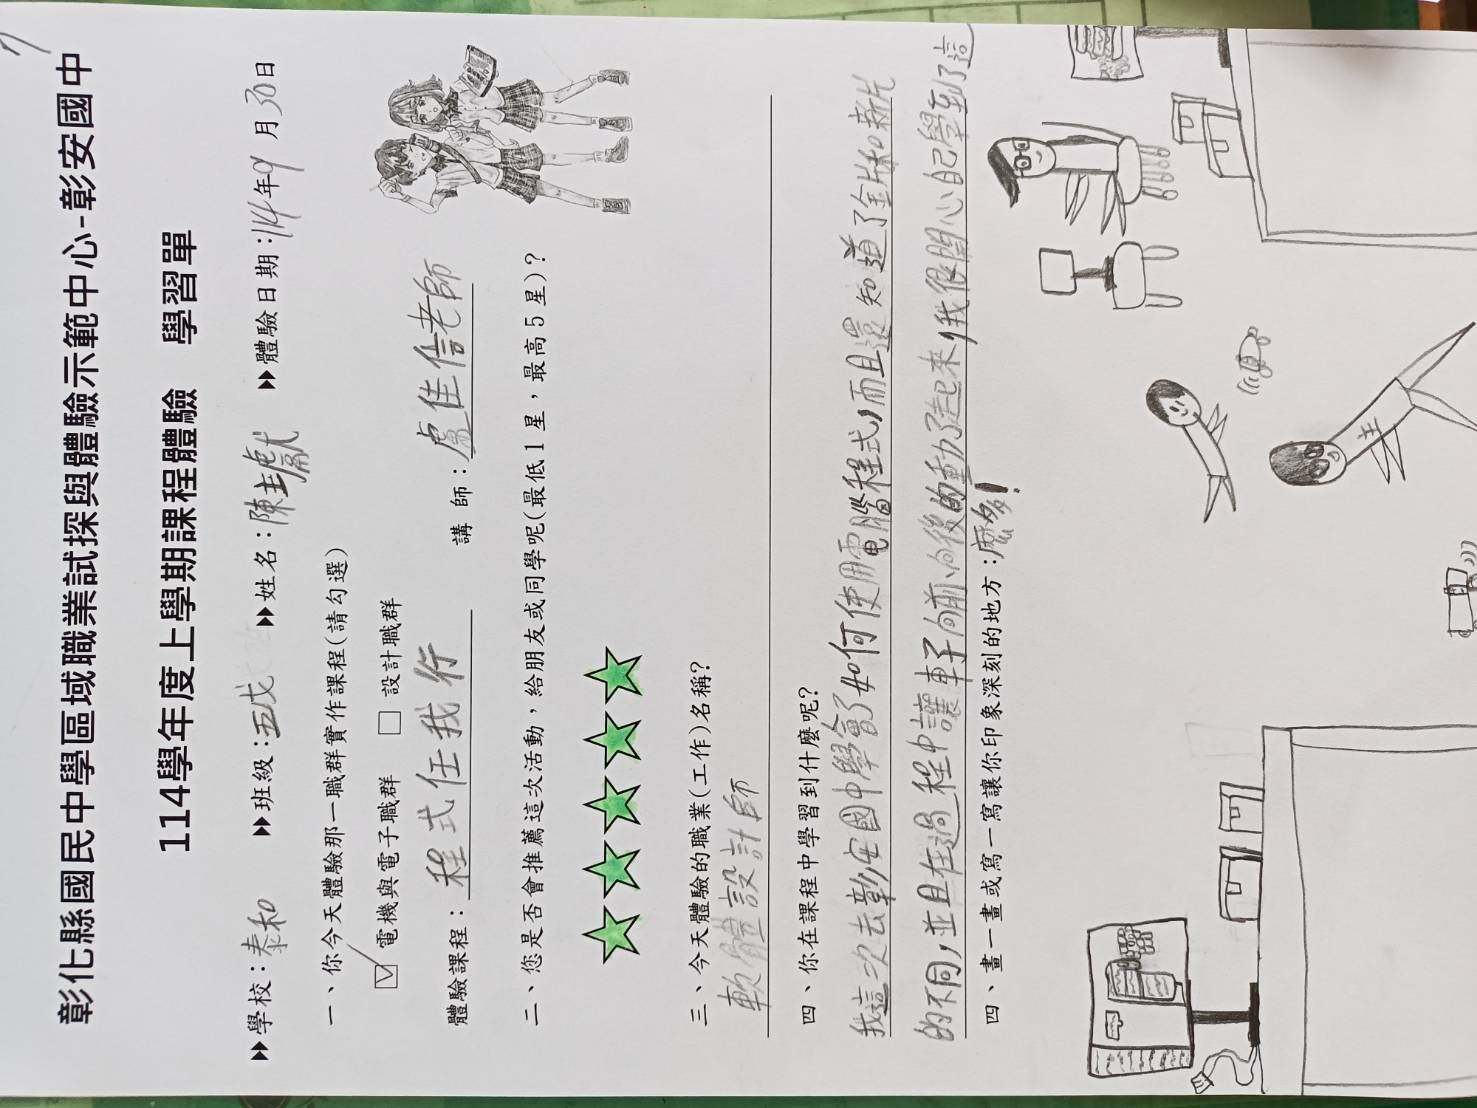 彰化縣國民中學區域職業試探與體驗示範中心-彰安國中
114學年度上學期課程體驗 學習單
學校：泰和 班級：五戊 姓名：陳 獻 體驗日期：114年9月30日
一、你今天體驗那一職群實作課程(請勾選)
☑電機與電子職群 □ 設計職群
體驗課程：程式任我行 講 師：盧佳信老師
二、您是否會推薦這次活動，給朋友或同學呢(最低1星，最高5星)？
三、今天體驗的職業(工作)名稱？
軟體設計師
四、你在課程中學習到什麼呢？
我這次去彰安國中學會了如何使用電腦程式，而且還知道了金片和新片
的不同，並且在過程中讓車子向前、向後的動了起來，我很開心自己學到了這
麼多！
四、畫一畫或寫一寫讓你印象深刻的地方：